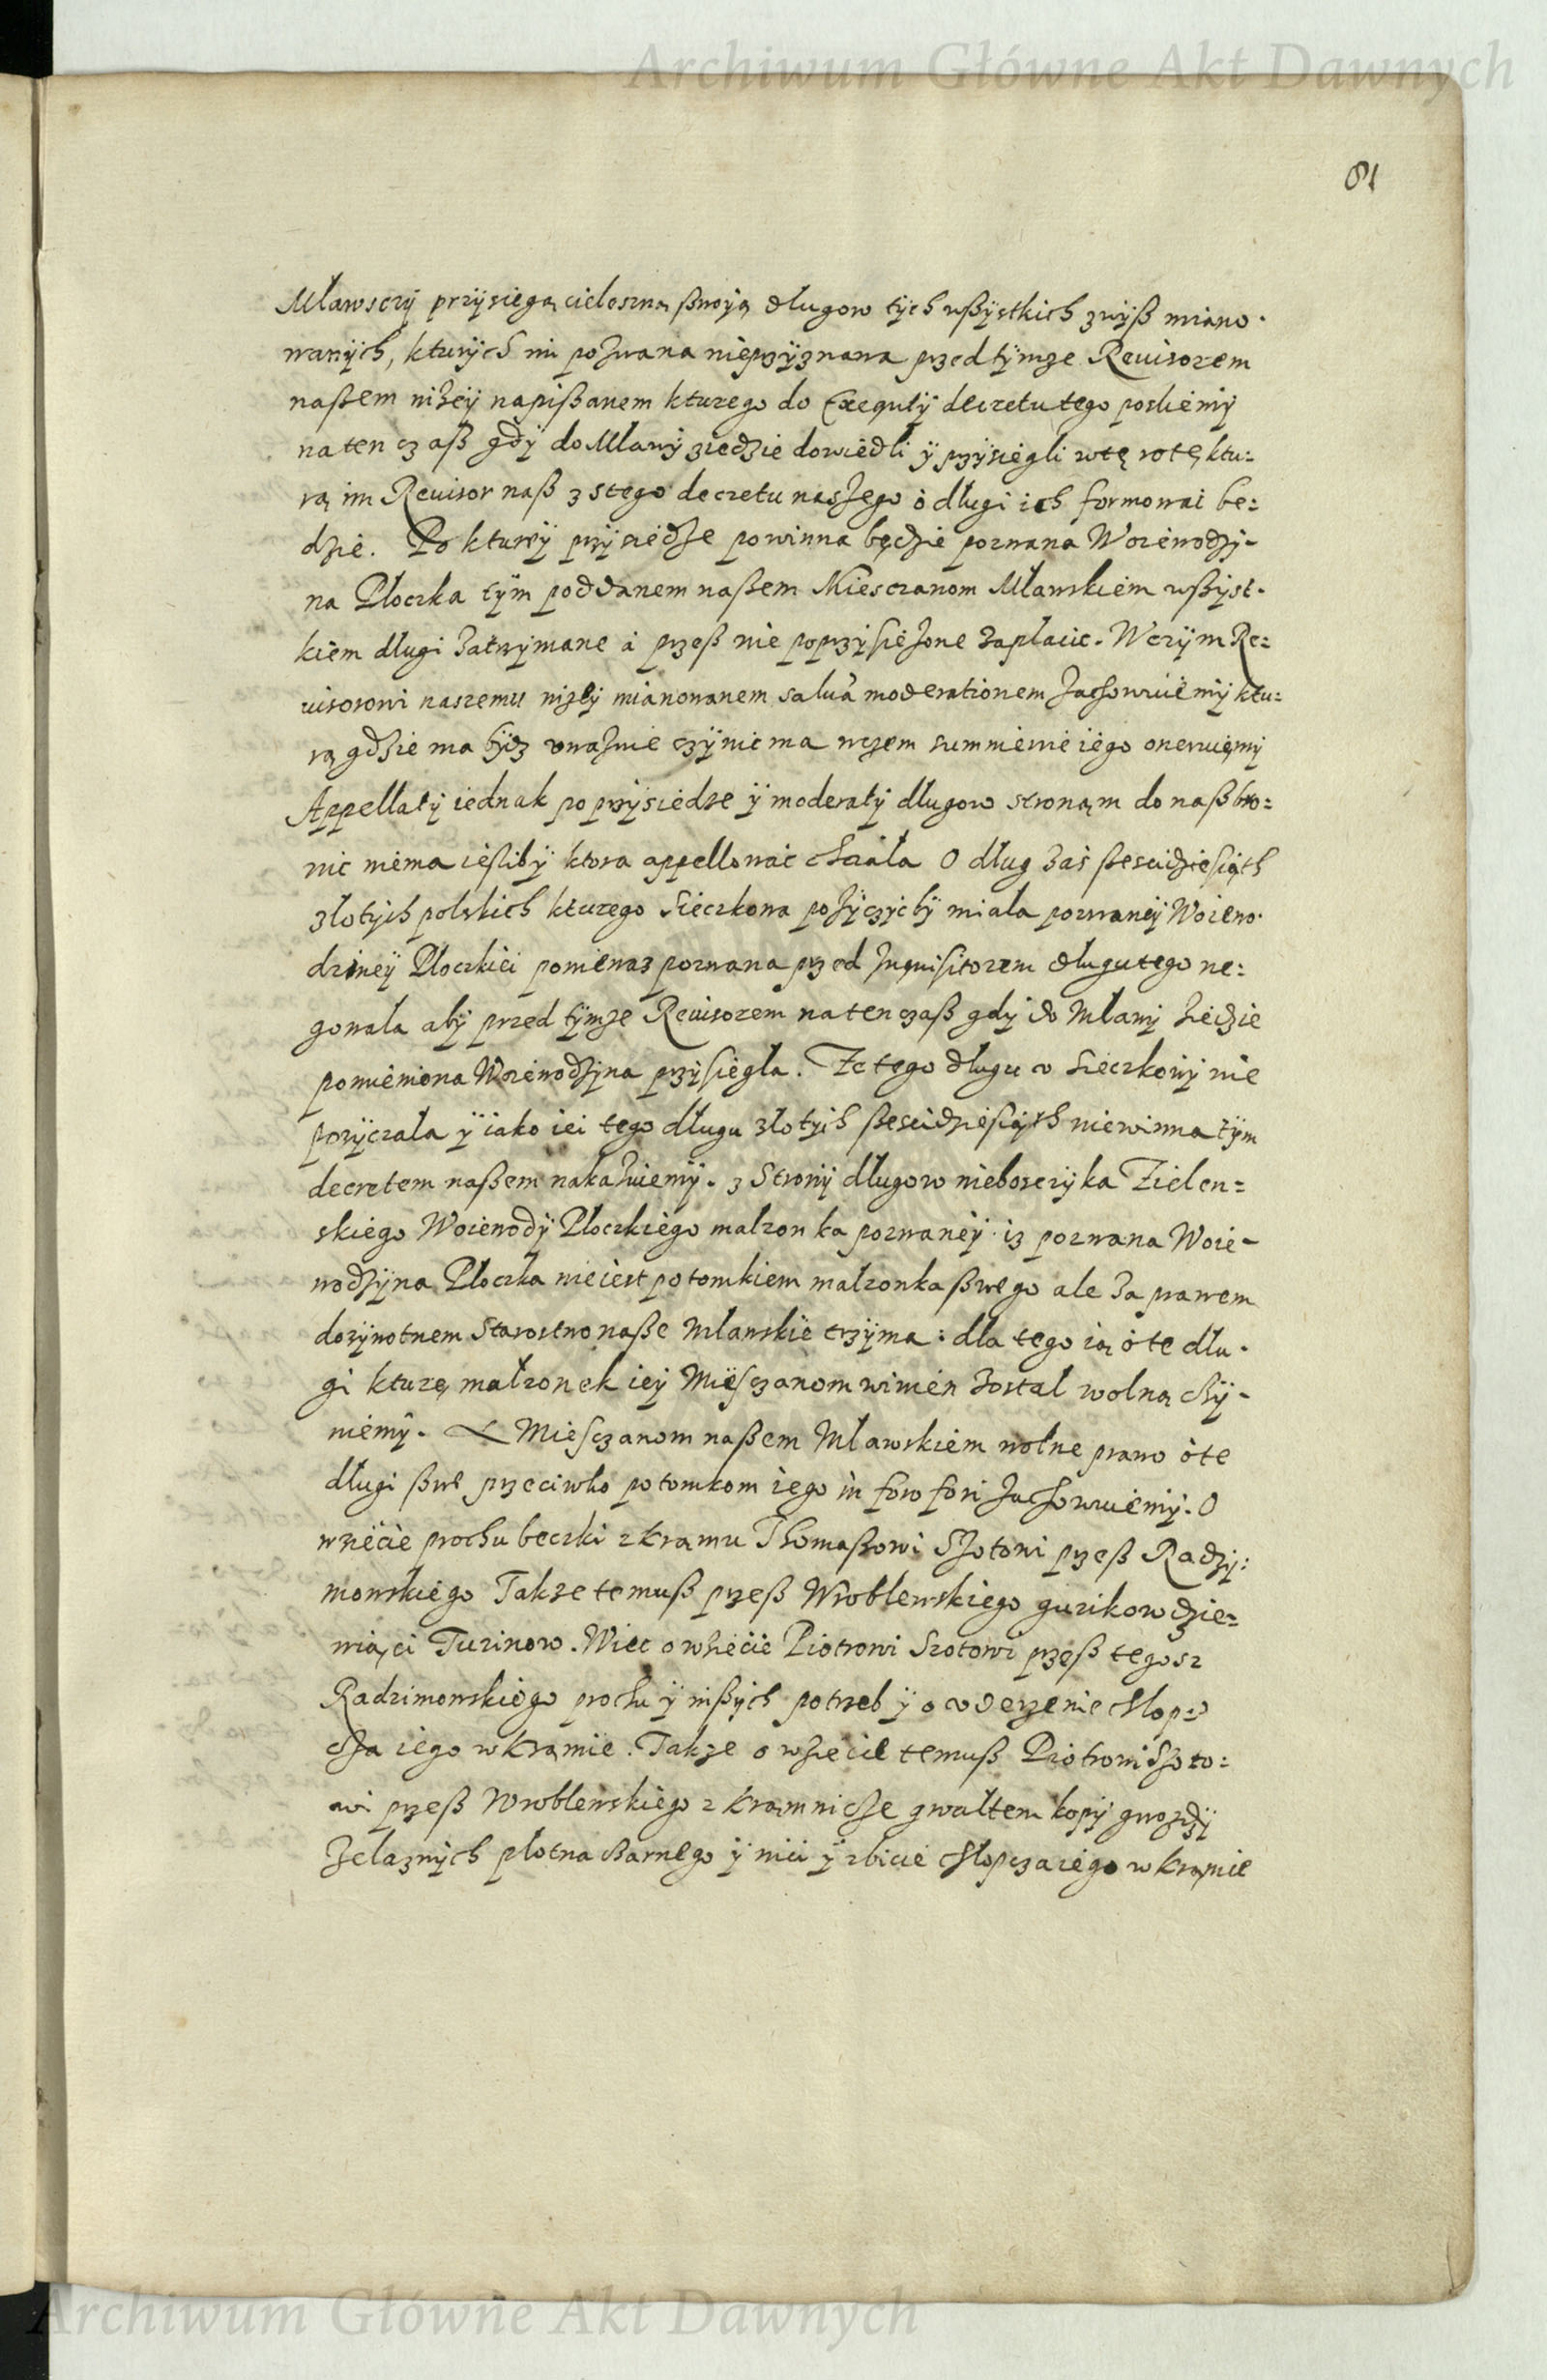 Archiwum Główne Akt Dawnych
81
Mławsczÿ przÿsięgą cieleszną ßwoią długow tÿch wßÿstkich zwÿß miano-
wanÿch, kturÿch im pozwana nieprzÿznawa przed tÿmze Reuisorem
naßem niżeÿ napißanem kturego do Exequtÿ decretu tego posliemÿ
na ten czaß gdÿ do Mławÿ ziedzie dowiedli ÿ przÿsiegli w tę rotę ktu=
rą im Reuisor naß z stego decretu naszego o długi ich formowai be=
dzie. Po kturÿ przÿsiedze powinna będzie pozwana Woiewodzÿ-
na Płoczka tÿm poddanem naßem Miesczanom Mławskiem wßÿst-
kiem długi zatrzÿmane a przeß nie poprzÿsiężone zapłacic. W czÿm Re=
uisorowi naszemu niżeÿ mianowanem salua moderationem zachowuiemÿ ktu=
rą gdzie ma bÿdz uważnie czÿnic ma w czem sumnienie iego oneruięmÿ
Appellatÿ iednak po przÿsiedze ÿ moderatÿ długow stronąm do naß bro=
nic niema iesliby ktora appellowac chciała O dług zaś ßesćidziesiąth
złotÿch polskich kturego Sieczkowa pożÿczÿć bÿ miała pozwaneÿ Woiewo-
dzineÿ Płoczkiei poniewaz pozwana przed Inquisitorem długu tego ne=
gowała abÿ przed tÿmze Reuisorem na ten czaß gdÿ do Mławÿ ziedzie
pomieniona Woiewodzÿna przÿsięgła. Ze tego długu v Sieczkowÿ nie
pozÿczała ÿ iako iei tego długu złotÿch ßesćidziesiąth niewinna tÿm
decretem naßem nakazuiemÿ. z Stronÿ długow nieboszczÿka Zielen=
skiego Woiewodÿ Płoczkiego małzonka pozwaneÿ iz pozwana Woie-
wodzÿna Płoczka nieiest potomkiem małzonka ßwego ale za prawem
dozÿwotnem Starostwo naße Mławskie trzÿma: dla tego ią o te dłu-
gi kturę małzonek ieÿ Miesczanom winien został wolną czÿ-
niemÿ. A Miesczanom naßem Mławskiem wolne prawo o te
długi ßwe przeciwko potomkom iego in foro fori zachowuiemÿ. O
wzięcie prochu beczki z kramu Thomaßowi Szotowi przeß Radzÿ=
mowskiego Takze temuß przeß Wroblewskiego guzikow dzie=
wiąci Tuzinow. Wiec o wziecie Piotrowi Szotowi przeß tegosz
Radzimowskiego prochu ÿ inßÿch potrzeb ÿ o vderzenie chłop=
cza iego w kramie. Takze o wziecie temuß Piotrowi Szoto=
wi przeß Wroblewskiego z kramnicze gwałtem kopÿ gwozdzÿ
zelaznÿch płotna czarnego ÿ nici ÿ zbicie chłopcza iego w kramie
Archiwum Główne Akt Dawnych